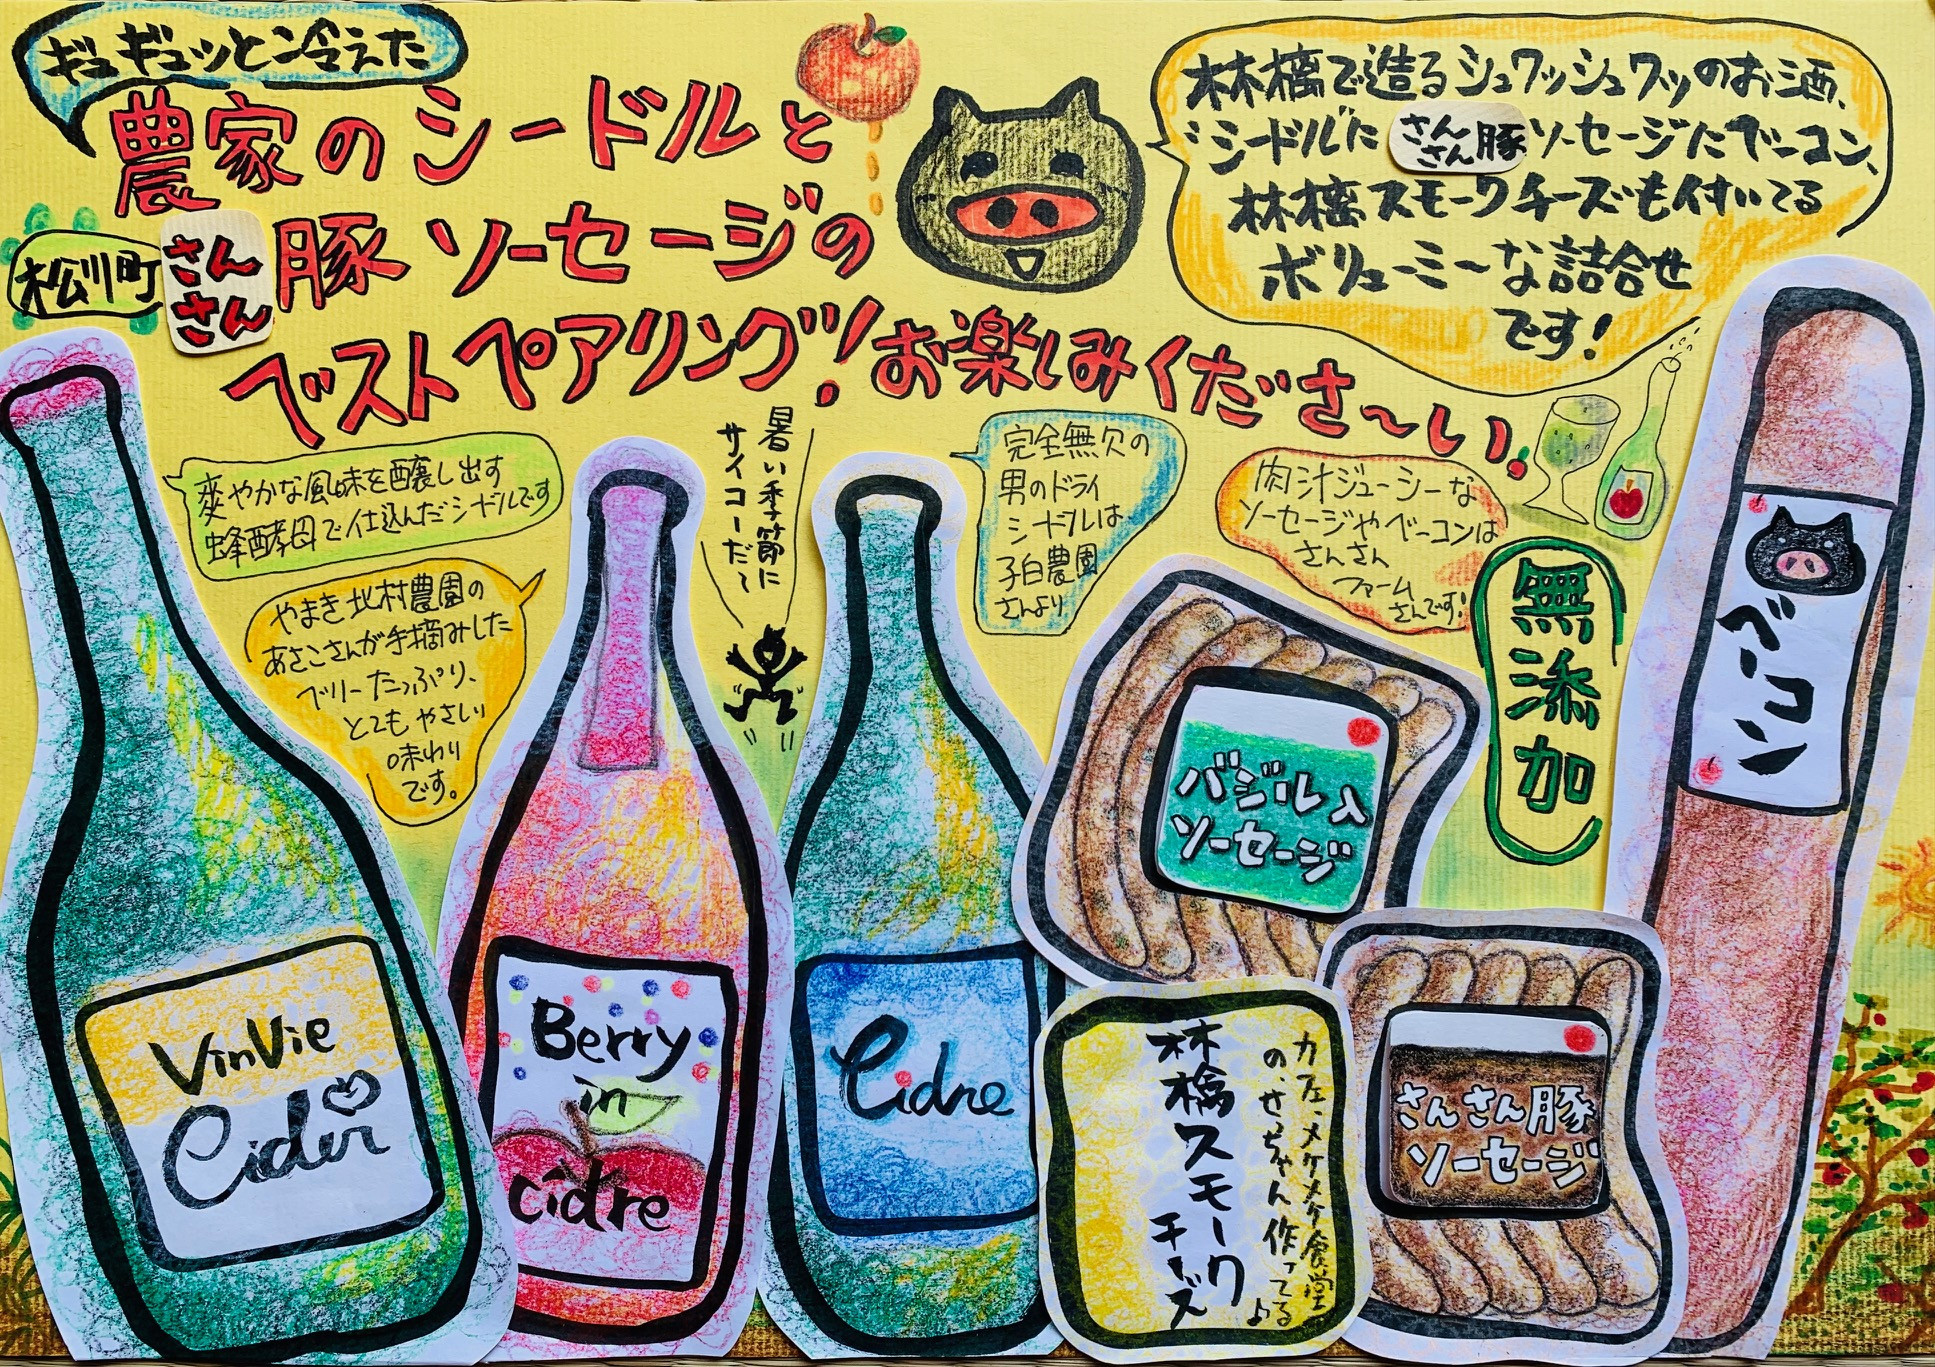 ギュギュッと冷えた
農家のシードルと
松川町
さん
さん
豚ソーセージの
ベストペアリングッ!お楽しみくださ～い!
林檎で造るシュワッシュワッのお酒、
シードルに さんさん豚 ソーセージにベーコン、
林檎スモークチーズも付いてる
ボリューミーな詰合せ
です!
爽やかな風味を醸し出す
蜂酵母で仕込んだシードルです
やまき北村農園の
あさこさんが手摘みした
ベリーたっぷり、
とてもやさしい
味わり
です。
暑い季節に
サイコーだて
完全無欠の
男のドライ
シードルは
子白農園
さんより
肉汁ジューシーな
ソーセージやベーコンは
さんさん
ファーム
さんです!
無添加
ベーコン
バジル入
ソーセージ
VinVie
Cider
Berry
in
cidre
Cidre
林檎スモークチーズ
カフェ・メケメケ食堂
の、せっちゃん作ってるよ
さんさん豚
ソーセージ